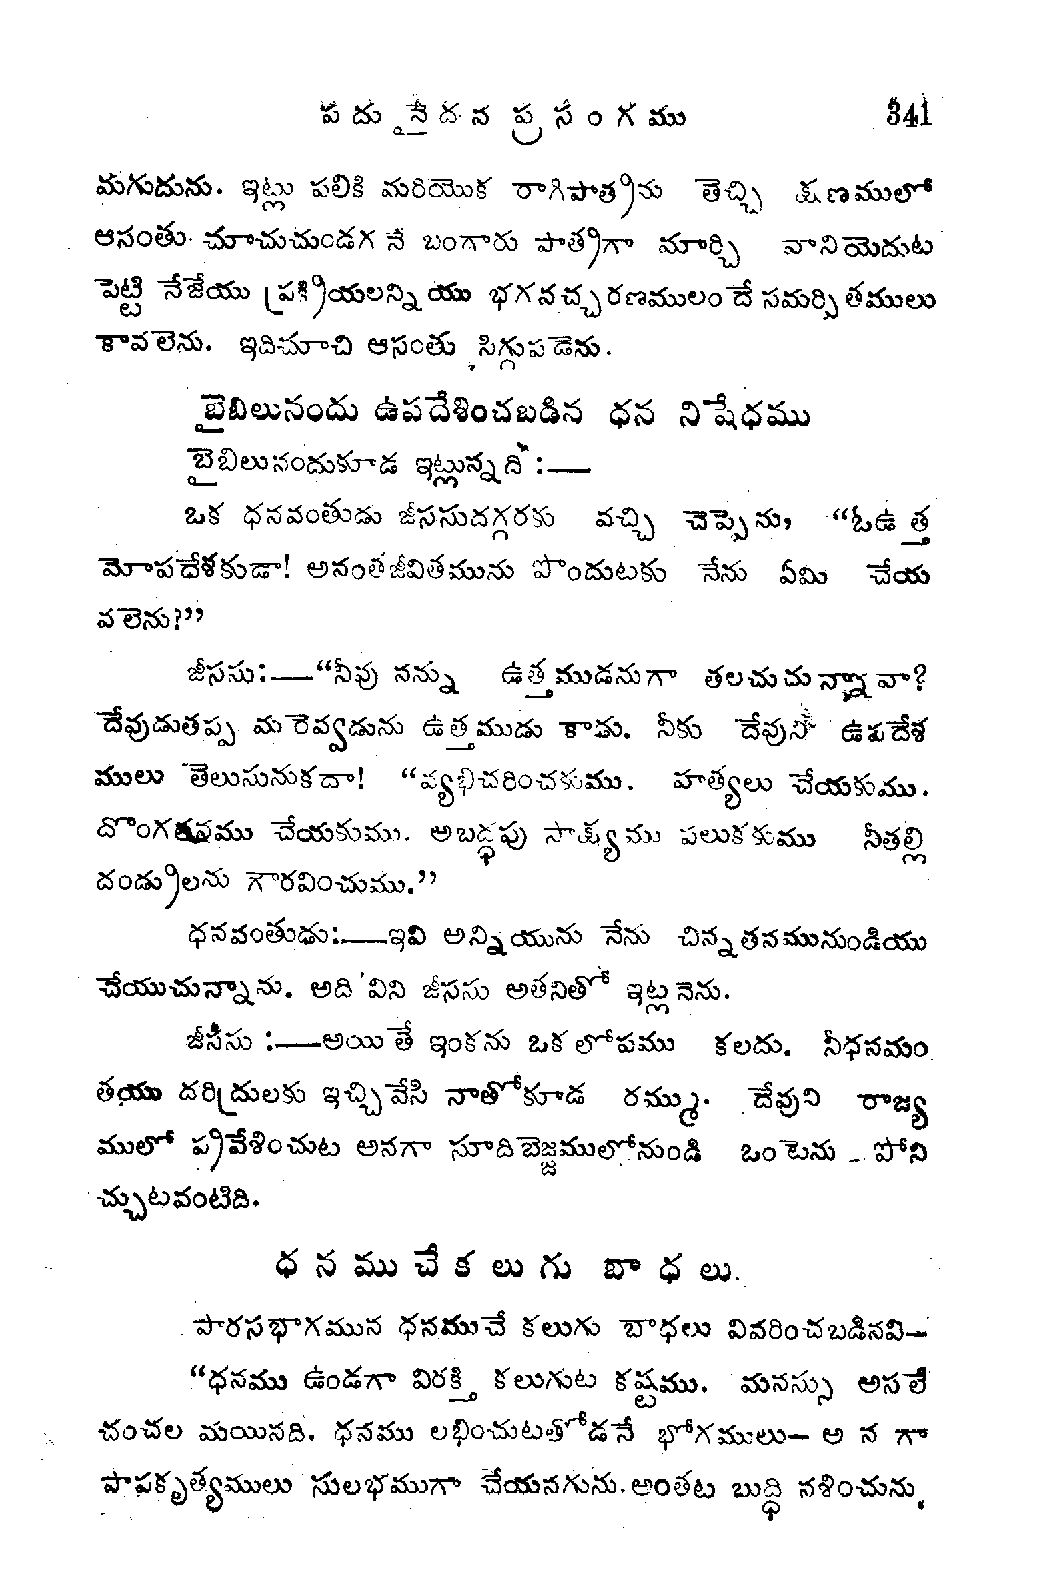 పదునైదన ప్రసంగము 341
మగుదును. ఇట్లు పలికి మరియొక రాగిపాత్రను తెచ్చి క్షణములో
ఆసంతు చూచుచుండగనే బంగారు పాత్రగా మార్చి వానియెదుట
పెట్టి నేజేయు ప్రక్రియలన్నియు భగవచ్చరణములందే సమర్పితములు
కావలెను. ఇదిచూచి ఆసంతు సిగ్గుపడెను.
బైబిలునందు ఉపదేశించబడిన ధన నిషేధము
బైబిలునందుకూడ ఇట్లున్నది :—
ఒక ధనవంతుడు జీససుదగ్గరకు వచ్చి చెప్పెను, “ఓఉత్త
మోపదేశకుడా! అనంతజీవితమును పొందుటకు నేను ఏమి చేయ
వలెను?”
జీససు:—“నీవు నన్ను ఉత్తముడనుగా తలచుచున్నావా?
దేవుడుతప్ప మరెవ్వడును ఉత్తముడు కాడు. నీకు దేవుని ఉపదేశ
ములు తెలుసునుకదా! “వ్యభిచరించకుము. హత్యలు చేయకుము.
దొంగతనము చేయకుము. అబద్ధపు సాక్ష్యము పలుకకుము నీతల్లి
దండ్రులను గౌరవించుము.”
ధనవంతుఢు:—ఇవి అన్నియును నేను చిన్నతనమునుండియు
చేయుచున్నాను. అది విని జీససు అతనితో ఇట్లనెను.
జీసీసు :—అయితే ఇంకను ఒకలోపము కలదు. నీధనమం
తయు దరిద్రులకు ఇచ్చివేసి నాతోకూడ రమ్ము. దేవుని రాజ్య
ములో ప్రవేశించుట అనగా సూదిబెజ్జములోనుండి ఒంటెను పోని
చ్చుటవంటిది.
ధనముచేకలుగు బాధలు.
పారసభాగమున ధనముచే కలుగు బాధలు వివరించబడినవి—
“ధనము ఉండగా విరక్తి కలుగుట కష్టము. మనస్సు అసలే
చంచల మయినది. ధనము లభించుటతోడనే భోగములు— అనగా
పాపకృత్యములు సులభముగా చేయనగును. అంతట బుద్ధి నశించును,